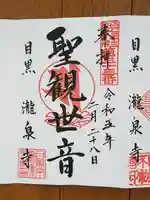 奉拝
令和五年
二月二十八日
聖観世音
目黒 瀧泉寺
目黒 瀧泉寺